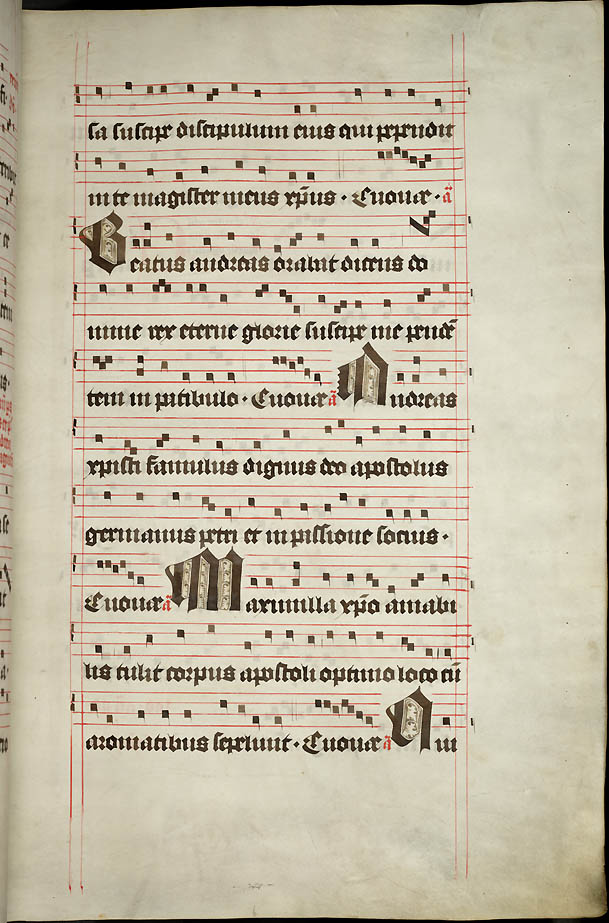 sa suscipe discipulum eius qui pependit
in te magister meus xp̄us · Euouae · ā
Beatus andreas orabat dicens do
mine rex eterne glorie suscipe me penden̄
tem in patibulo · Euouae ā Andreas
xpisti famulus dignus deo apostolus
germanus petri et in passione socius ·
Euouae ā Maximilla xp̄o amabi
lis tulit corpus apostoli optimo loco cū
aromatibus sepeliuit · Euouae ā